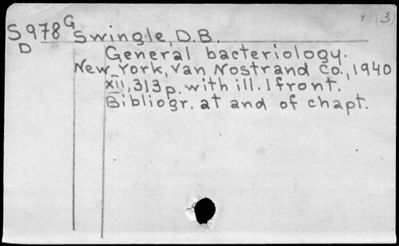 S978 G Swingle, D.B. (3)
D
General bacteriology.
New York, Van Nostrand Co., 1940
XII, 313 p. with ill. 1 front.
Bibliogr. at and of chapt.